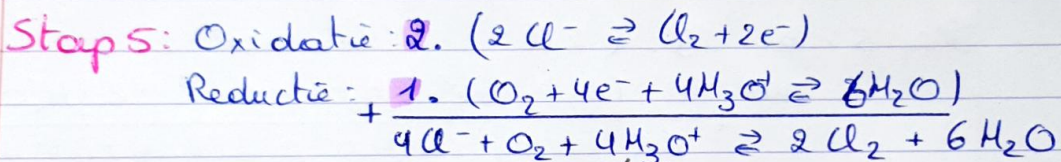 Stap 5: Oxidatie: 2. (2 Cl⁻ ⇄ Cl₂ + 2e⁻)
Reductie: + 1. (O₂ + 4e⁻ + 4H₃O⁺ ⇄ 6H₂O)
4Cl⁻ + O₂ + 4H₃O⁺ ⇄ 2 Cl₂ + 6 H₂O